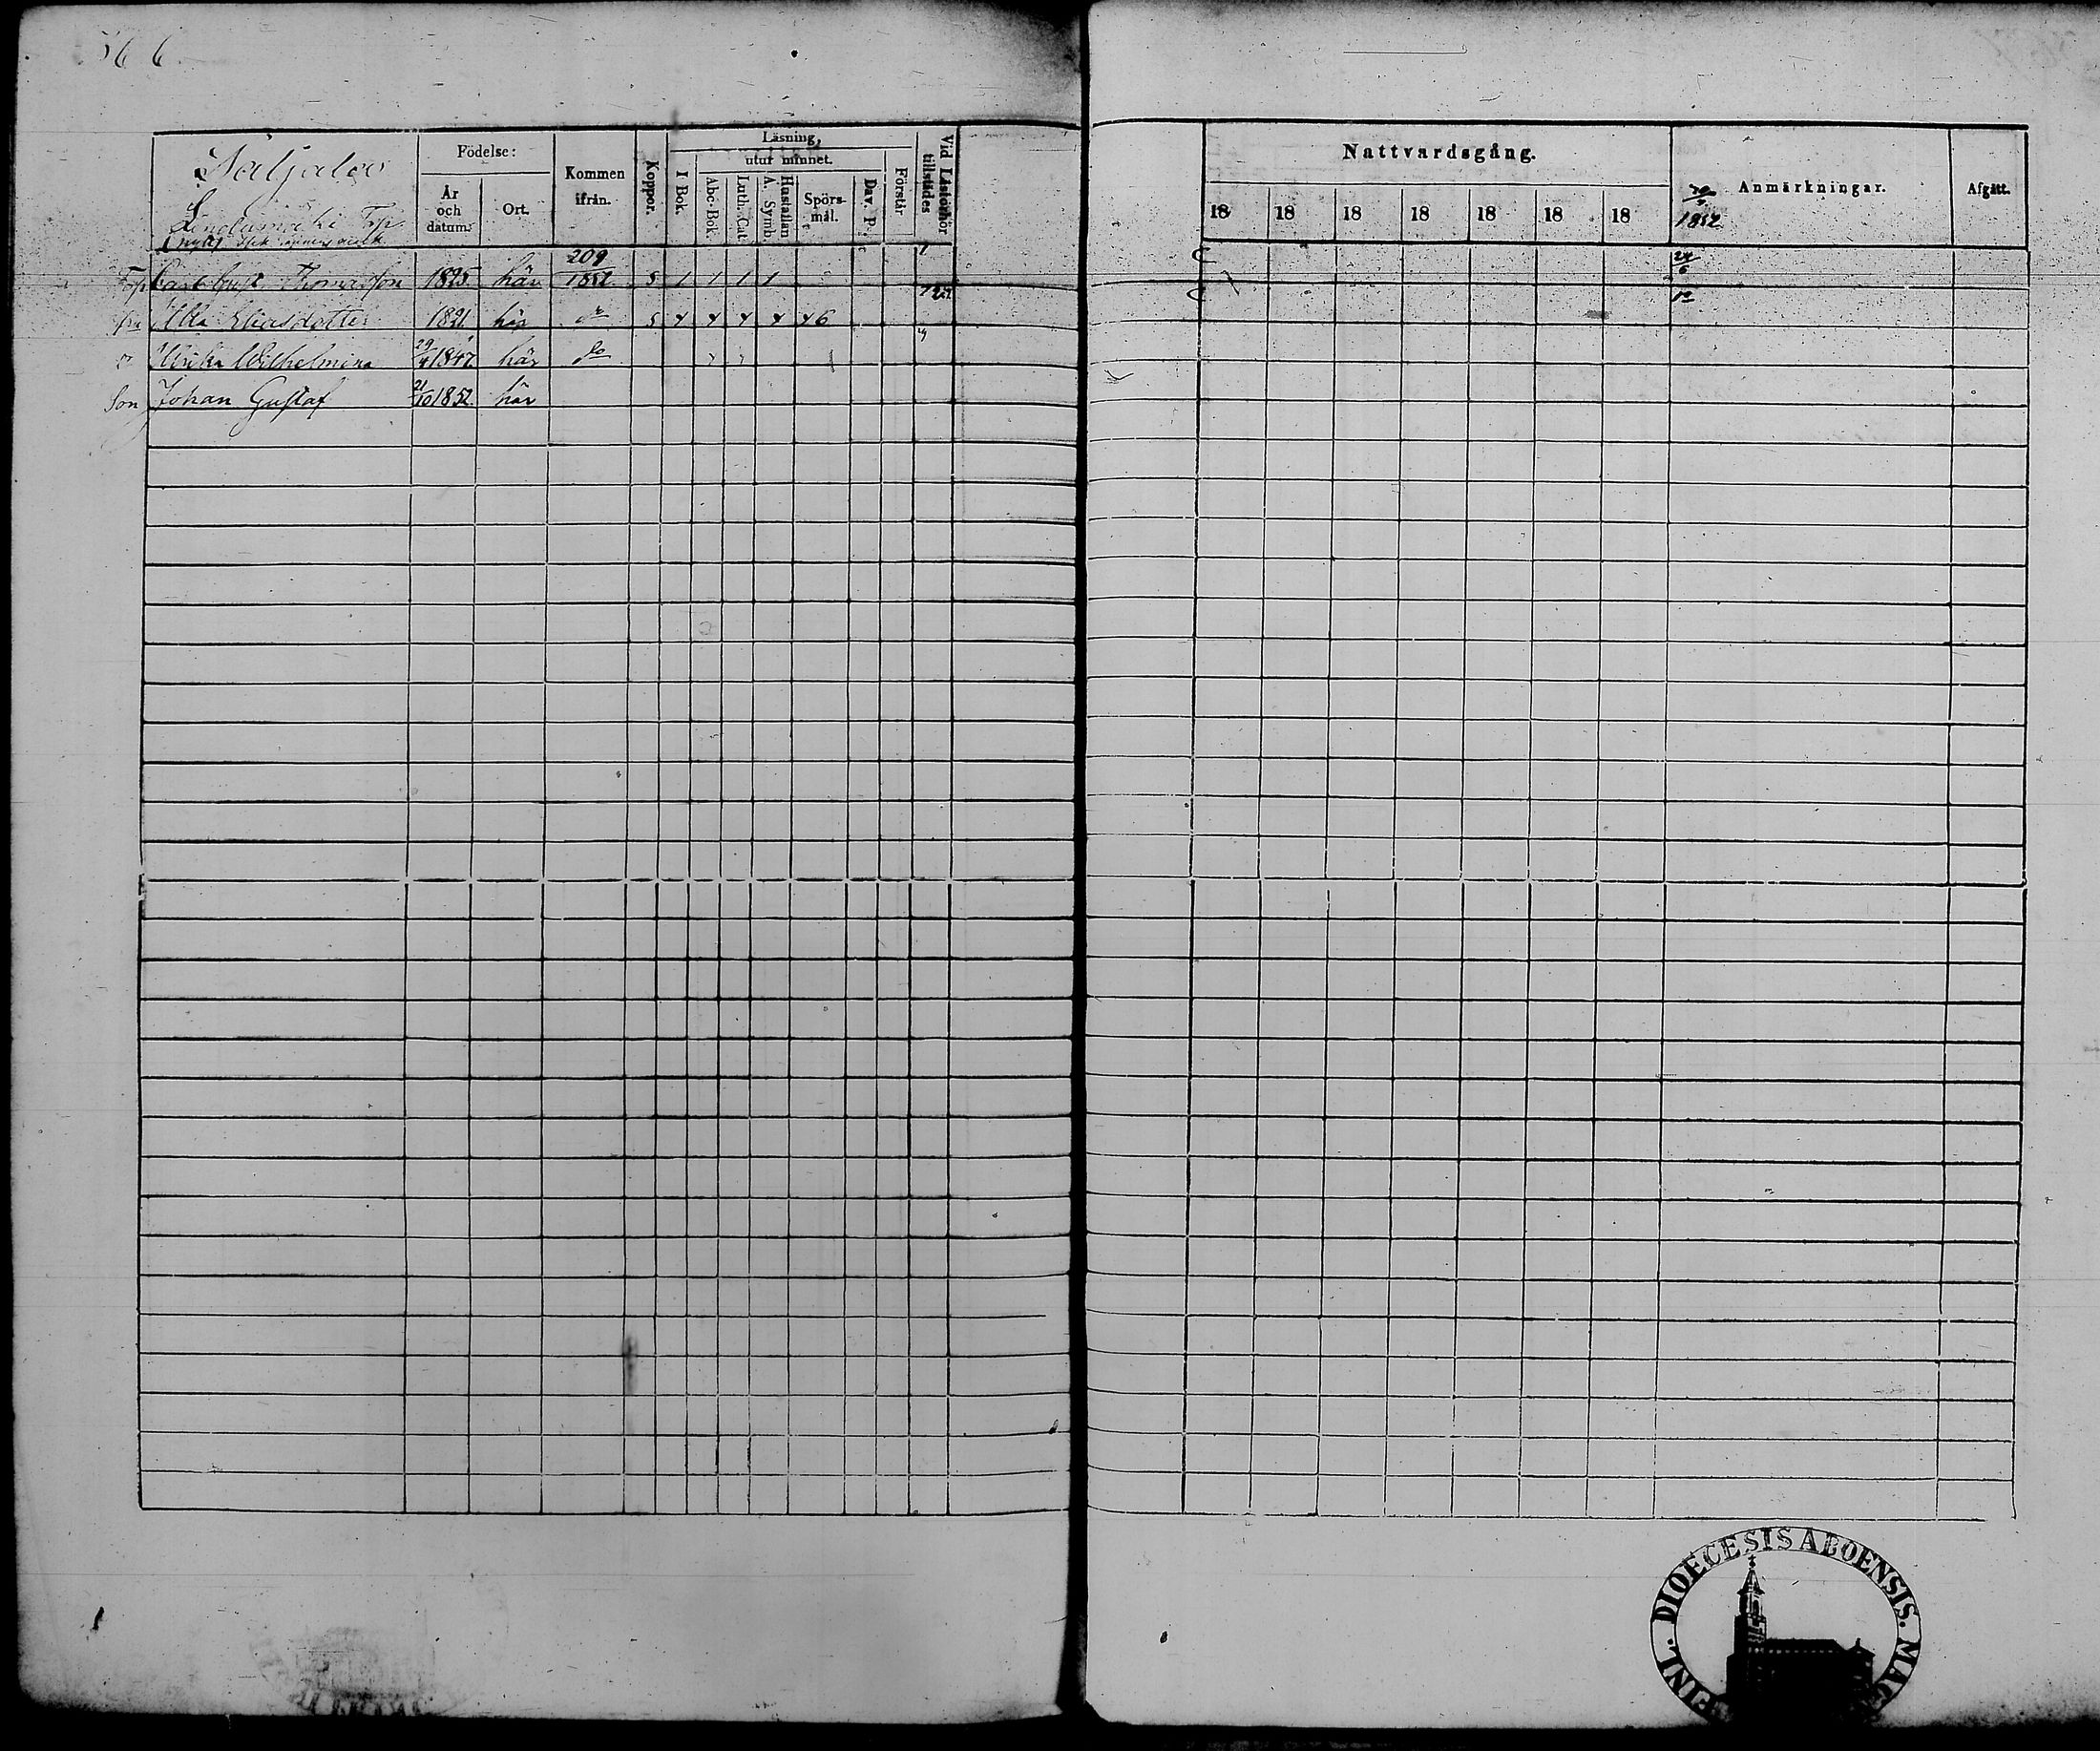 566
Läsning,
Födelse:
utur minnet.
Kommen ifrån.
Koppor.
I Bok.
Abc-Bok.
Luth. Cat.
A. Symb.
Hustaflan
Spörs-mål.
Dav. P.
Förstår
Vid Läseförhör tillstädes
År och datum.
Ort.
Nattvardsgång.
Anmärkningar.
Afgått.
18 18 18 18 18 18 18
1852
Lindunmäki Tp
209
Tp Carl Gust Thomasson 1825 här 1852 5 1 1 1 1
Eliasdotter 1821 här 5 4 4 4 4 4 6
Ulrika Wilhelmina 29/4 1847 här do
Son Johan Gustaf 21/10 1852 här
24/6
FINL. DIOECESIS ABOENSIS. MAG